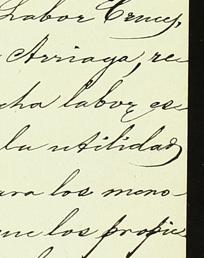 Labor Cruz,
Arriaga, re
cha labor es
la utilidad
ara los meno
ue los propie